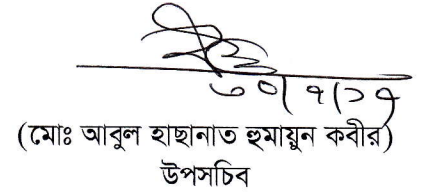 ৩০|৭|১৭
(মোঃ আবুল হাছানাত হুমায়ুন কবীর)
উপসচিব